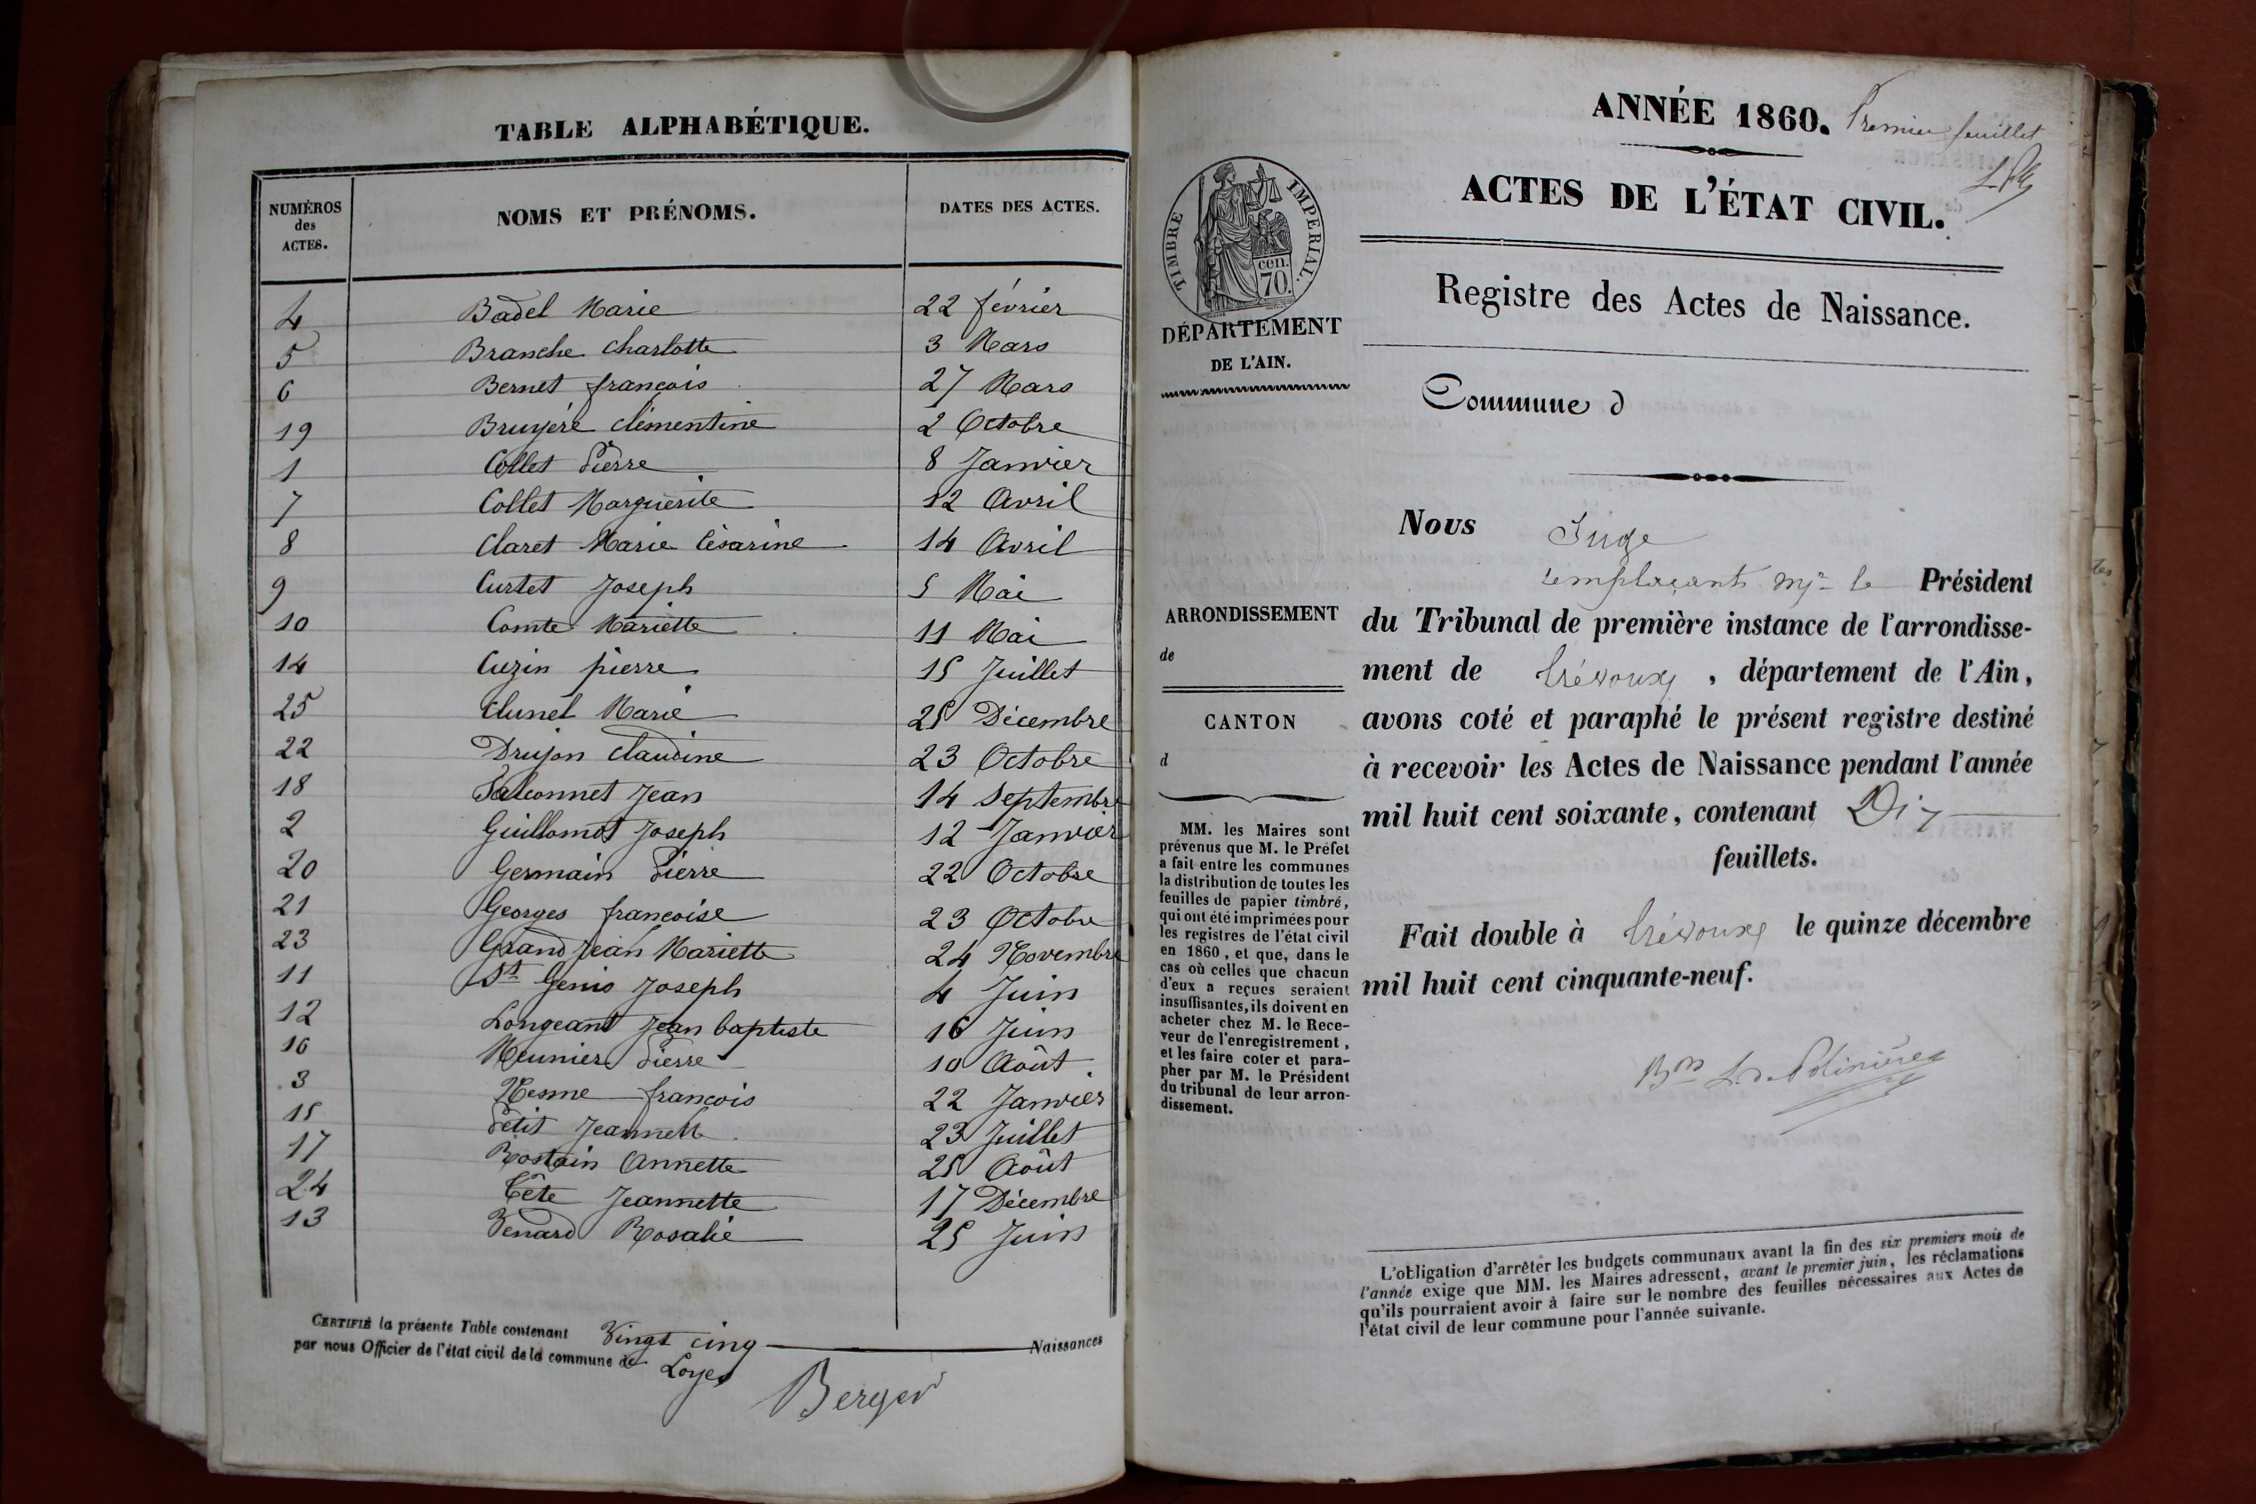 TABLE ALPHABÉTIQUE.
NUMÉROS des ACTES. NOMS ET PRÉNOMS. DATES DES ACTES.
4 Badel Marie 22 février
5 Branche charlotte 3 Mars
6 Bernet françois 27 Mars
19 Bruyère clémentine 2 Octobre
1 Collet Pierre 8 Janvier
7 Collet Marguerite 12 Avril
8 Claret Marie Césarine 14 Avril
9 Curtet Joseph 5 Mai
10 Comte Mariette 11 Mai
14 Cuzin pierre 15 Juillet
25 Clunel Marie 25 Décembre
22 Drujon claudine 23 Octobre
18 Falconnet Jean 14 Septembre
2 Guillomot Joseph 12 Janvier
20 Germain Pierre 22 Octobre
21 Georges françoise 23 Octobre
23 Grand Jean Mariette 24 Novembre
11 St Genis Joseph 4 Juin
12 Longeant Jean baptiste 16 Juin
16 Meunier Pierre 10 Août
3 Nesme françois 22 Janvier
15 Petit Jeannette 23 Juillet
17 Rostain Annette 25 Août
24 Tête Jeannette 17 Décembre
13 Venard Rosalie 25 Juin
CERTIFIÉ la présente Table contenant Vingt cinq Naissances
par nous Officier de l'état civil de la commune de Loyes
Berger
ANNÉE 1860. Premier feuillet
ACTES DE L'ÉTAT CIVIL.
TIMBRE IMPERIAL.
cen.
70.
DÉPARTEMENT
DE L'AIN.
ARRONDISSEMENT
de
CANTON
d
MM. les Maires sont
prévenus que M. le Préfet
a fait entre les communes
la distribution de toutes les
feuilles de papier timbré,
qui ont été imprimées pour
les registres de l'état civil
en 1860, et que, dans le
cas où celles que chacun
d'eux a reçues seraient
insuffisantes, ils doivent en
acheter chez M. le Rece-
veur de l'enregistrement,
et les faire coter et para-
pher par M. le Président
du tribunal de leur arron-
dissement.
Registre des Actes de Naissance.
Commune d
Nous Juge
remplaçant Mr le Président
du Tribunal de première instance de l'arrondisse-
ment de Trévoux, département de l'Ain,
avons coté et paraphé le présent registre destiné
à recevoir les Actes de Naissance pendant l'année
mil huit cent soixante, contenant Dix
feuillets.
Fait double à Trévoux le quinze décembre
mil huit cent cinquante-neuf.
Bon L. de Polinière
L'obligation d'arrêter les budgets communaux avant la fin des six premiers mois de
l'année exige que MM. les Maires adressent, avant le premier juin, les réclamations
qu'ils pourraient avoir à faire sur le nombre des feuilles nécessaires aux Actes de
l'état civil de leur commune pour l'année suivante.